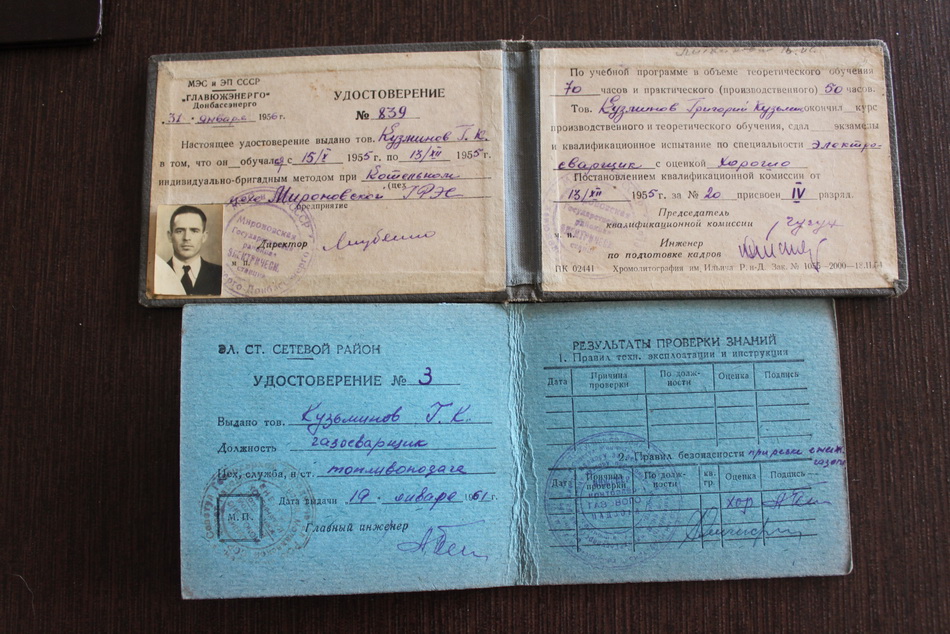 МЭС и ЭП СССР
"ГЛАВЮЖЭНЕРГО"
Донбассэнерго
31 · января 1956 г.
УДОСТОВЕРЕНИЕ
№ 839
Настоящее удостоверение выдано тов. Кузминов Г. К.
в том, что он обучался с 15/X 1955 г. по 13/XII 1955 г.
индивидуально-бригадным методом при Котельном
(цех
цехе Мироновской ГРЭС
предприятие
Директор
м. п.
Мироновская
Государственная
районная
ЭЛЕКТРИЧЕСК.
станция
По учебной программе в объеме теоретического обучения
70 часов и практического (производственного) 50 часов.
Тов. Кузминов Григорий Кузьм окончил курс
производственного и теоретического обучения, сдал экзамены
и квалификационное испытание по специальности Электро-
сварщик с оценкой хорошо
Постановлением квалификационной комиссии от
13/XII 1955 г. за № 20 присвоен IV разряд.
Председатель
квалификационной комиссии
м. п.
Инженер
по подготовке кадров
ПК 02441 Хромолитография им. Ильича, Р. н-Д. Зак. №
ЭЛ. СТ. СЕТЕВОЙ РАЙОН
УДОСТОВЕРЕНИЕ № 3
Выдано тов. Кузьминов Г. К.
Должность газосварщик
Цех, служба, в ст. топливоподаче
Дата выдачи 19 · января 1961 г.
М. П.
Главный инженер
РЕЗУЛЬТАТЫ ПРОВЕРКИ ЗНАНИЙ
1. Правил техн. эксплоатации и инструкция
Дата Причина проверки По долж- ности Оценка Подпись
2. Правил безопасности при резке
Дата Причина проверки По долж- ности кв. гр. Оценка Подпись
хор